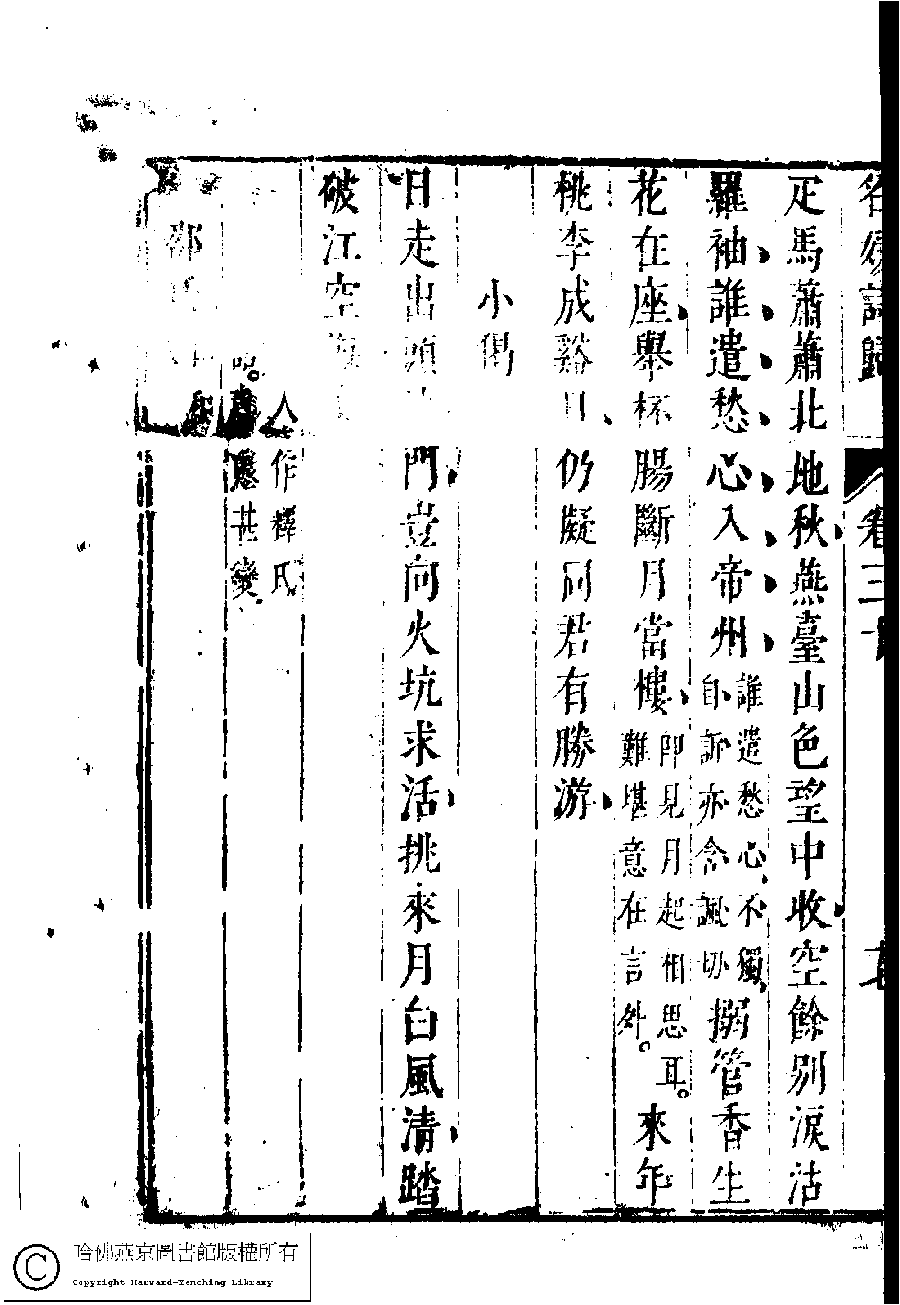 名媛詩歸 卷三十
疋馬蕭蕭北地秋燕臺山色望中收空餘別淚沾
羅袖誰遣愁心入帝州誰遣愁心不獨自訴亦含諷切搦管香生
花在座舉杯腸斷月當樓即見月起相思耳。難堪意在言外。來年
桃李成谿日仍凝同君有勝游
小偈
日走出頭門豈向火坑求活挑來月白風清踏
破江空
人作釋氏甚變
鄒
哈佛燕京圖書館版權所有
Copyright Harvard-Yenching Library